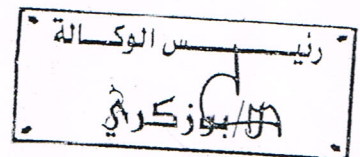 رئيس الوكالة
م/بوزكري